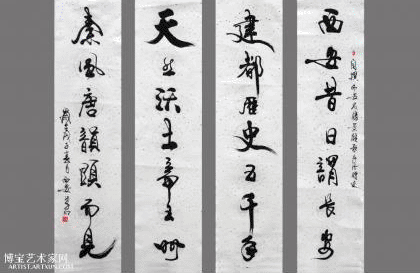 西安昔日謂長安
建都歷史五千年
天然沃土帝王州
秦風唐韻顕而見
博宝艺术家网
ARTIST.ARTXUN.COM